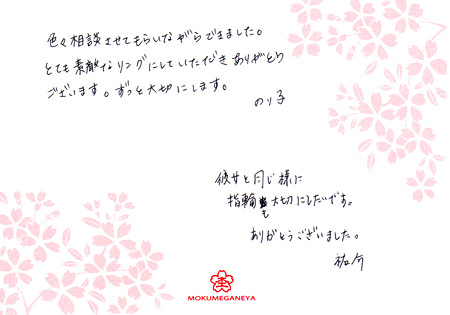 色々相談させてもらいながらできました。
とても素敵なリングにしていただきありがとう
ございます。ずっと大切にします。
のり子
彼女と同じ様に
指輪も大切にしたいです。
ありがとうございました。
祐介
MOKUMEGANEYA